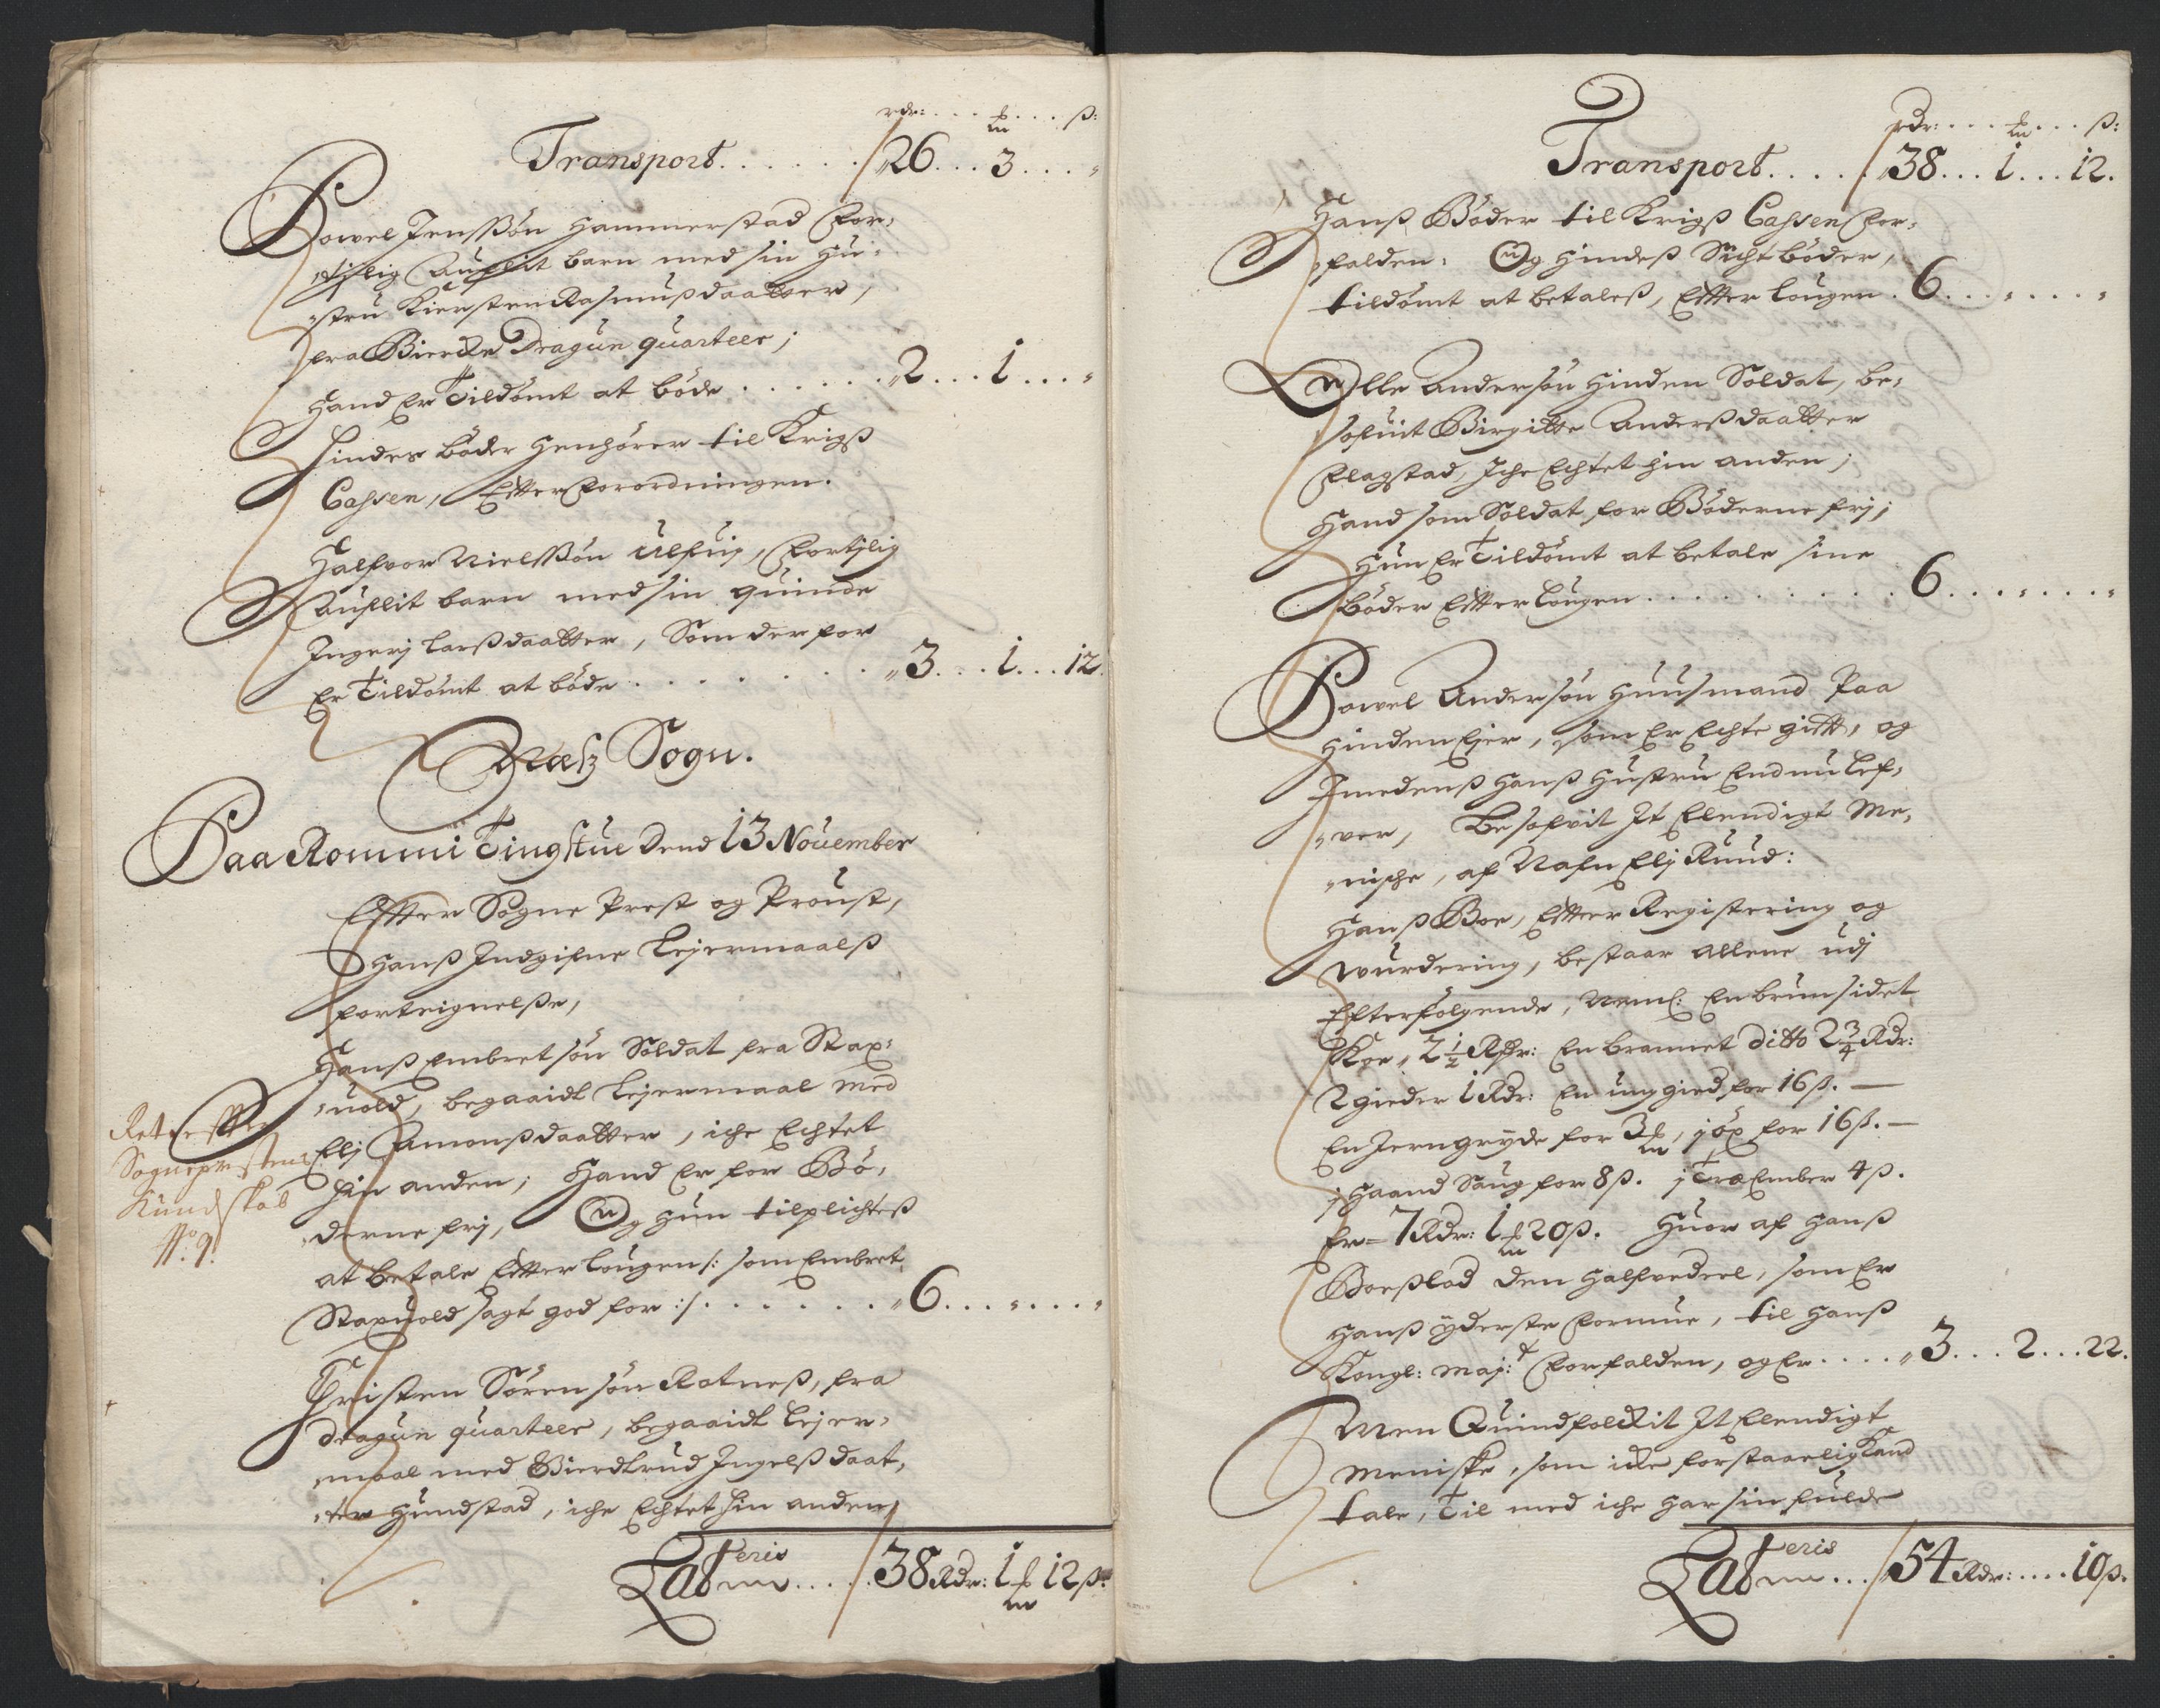 rdr: . . . m͟k . . . ß:
Transport . . . . . . 26 . . . 3 . . . "
Powel Jenssøn Hammerstad for,
tijlig auflit barn med sin Hu,
stru Kiersten Rasmusdaatter,
fra Bierche Dragun quarteer;
Hand Er Tildømt at bøde . . . . . . " 2 . . . 1 . . . "
Hindes bøder henhører til Krigs
Cassen, Effter Forordningen.
Halfvor Nielssøn Ulfuin, fortijlig
auflit barn med sin quinde
Ingerj Larsdaatter, Som der for
Er Tildømt at bøde . . . . . . . " 3 . . . 1 . . . 12.
Næss Sogn.
Paa Rommi Tingstue Dend 13 November
Effter Sogne Prest og Proust,
Hans Indgifne Leyermaals
forteignelse,
Hans Embretsøn Soldat fra Stax,
uold, begaaidt Leyermaal med
Elj Amonsdaatter, iche Echtet
hin anden; Hand Er for Bø,
derne frj, Og hun tilplichtes
at betale Effter Lougen /: som Embret
Staxuold sagt god for :/ . . . . . . . " 6 . . . " . . . "
Ret effter
Sogneprestens
Kundskab
No 9.
Christen Sørensøn Rotnes, fra
Dragun quarteer, begaaidt Leyer,
maal med Gierdtrud Ingelsdaat,
ter Hundstad, iche Echtet hin anden,
Lateris . . . . . 38 Rdr: 1 m͟k 12 ß.
Rdr: . . . m͟k . . . ß:
Transport . . . . . 38 . . . 1 . . . 12.
Hans Bøder til Krigs Cassen for,
falden: Og Hindes Sicht bøder,
tildømt at betales, Effter Lougen . 6 . . . " . . . "
Olle Andersøn Hinden Soldat, be,
sofuit Birgitte Andersdaatter
Flagstad, Iche Echtet hin anden;
Hand som Soldat for Bøderne frj;
Hun Er Tildømt at betale sine
Bøder Effter Lougen . . . . . . . . . 6 . . . " . . . "
Powel Andersøn Huusmand Paa
Hinden Ejer, som Er Echte gifft, og
Imedens Hans Hustru End nu lef,
ver, Besofvit It Elendigt Me,
nische, af Nafn Elj Ruud:
Hans Boe, Effter Registering og
Wurdering, bestaar allene udj
Efterfølgende, Neml: En brun sidet
Koe, 2 1/2 Rdr: En brannet ditto 2 3/4 Rdr:
2 gieder 1 Rdr: En ung gied for 16 ß. —
En Jerngryde for 3 m͟k, j øx for 16 ß. —
j Haand Saug for 8 ß. j Træ Ember 4 ß.
Er = 7 Rdr: 1 m͟k 20 ß. Huor af Hans
Boeslod den Halfvedeel, som Er
Hans yderste Formue, til Hans
Kongl: Maj:t Forfalden, og Er . . . . " 3 . . . 2 . . . 22.
Men Quindfolchit It Elendigt
Meniske, som icke forstaarlig Kand
tale, Til med iche har sin fulde
Lateris . . . 54 Rdr: . . . . 10 ß.